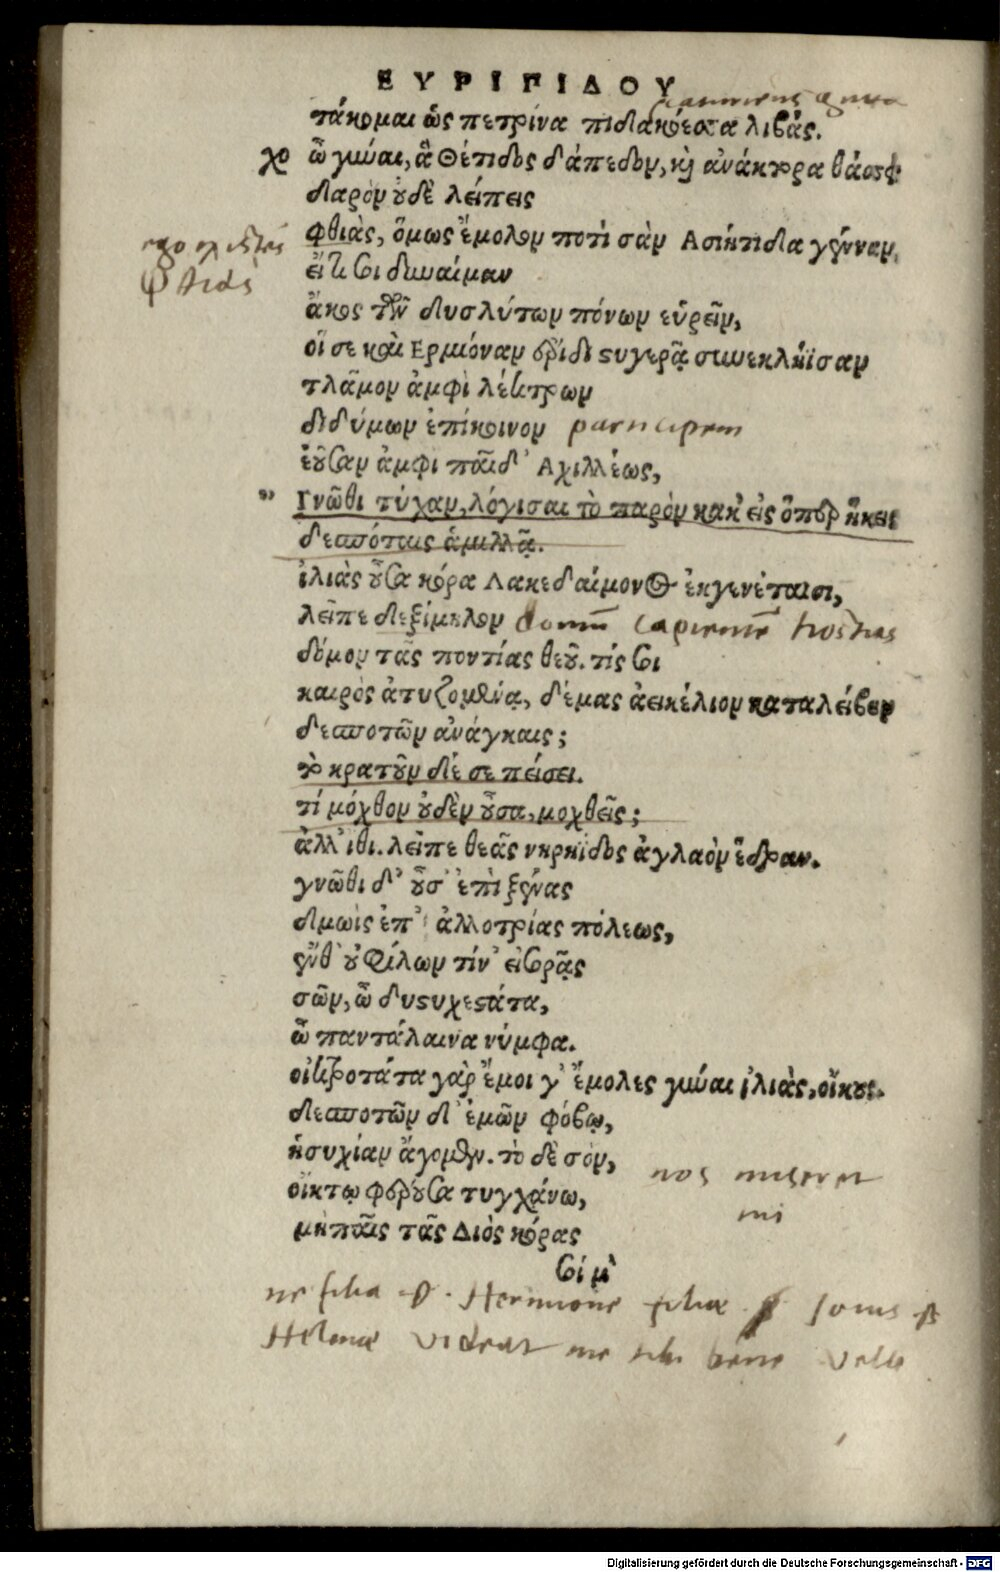 ΕΥΡΙΠΙΔΟΥ
τάκομαι ὡς πετρίνα πιδακόεσσα λιβάς.
χο ὦ γύναι, ἃ Θέτιδος δάπεδον, καὶ ἀνάκτορα θάσσεις
δαρὸν οὐδὲ λείπεις
φθιὰς, ὅμως ἔμολον ποτὶ σὰν Ασιήτιδα γένναν,
Φθιὰς
εἴ τι σοι δυναίμαν
ἄκος τῶν δυσλύτων πόνων εὑρεῖν,
οἵ σε καὶ Ερμιόναν ἔριδι στυγερᾷ συνεκλήϊσαν
τλᾶμον ἀμφὶ λέκτρων
διδύμων ἐπίκοινον participem
ἐοῦσαν ἀμφὶ παῖδ' Αχιλλέως,
" Γνῶθι τύχαν, λόγισαι τὸ παρὸν κακὸν εἰς ὅπερ ἥκεις
δεσπόταις ἁμιλλᾷ.
ἰλιὰς οὖσα κόρα Λακεδαίμονος ἐκγενέταισι,
λεῖπε δεξίμηλον domum capientem hostias
δόμον τᾶς ποντίας θεοῦ. τίς σοι
καιρὸς ἀτυζομένᾳ, δέμας ἀεικέλιον καταλείβειν
δεσποτῶν ἀνάγκαις;
τὸ κρατοῦν δέ σε πείσει.
τί μόχθον οὐδὲν οὖσα, μοχθεῖς;
ἀλλ' ἴθι. λεῖπε θεᾶς νηρηΐδος ἀγλαὸν ἕδραν.
γνῶθι δ' οὖσ' ἐπὶ ξένας
δμωὶς ἐπ' ἀλλοτρίας πόλεως,
ἔνθ' οὐ φίλων τίν' εἰσορᾷς
σῶν, ὦ δυστυχεστάτα,
ὦ παντάλαινα νύμφα.
οἰκτροτάτα γὰρ ἔμοι γ' ἔμολες γύναι ἰλιὰς, οἴκους.
δεσποτῶν δ' ἐμῶν φόβῳ,
ἡσυχίαν ἄγομεν. τὸ δὲ σὸν,
οἴκτῳ φέρουσα τυγχάνω,
μὴ παῖς τᾶς Διὸς κόρας
σοί μ'
ne filia Hermione filia Iouis
Helenae videat me tibi bene velle